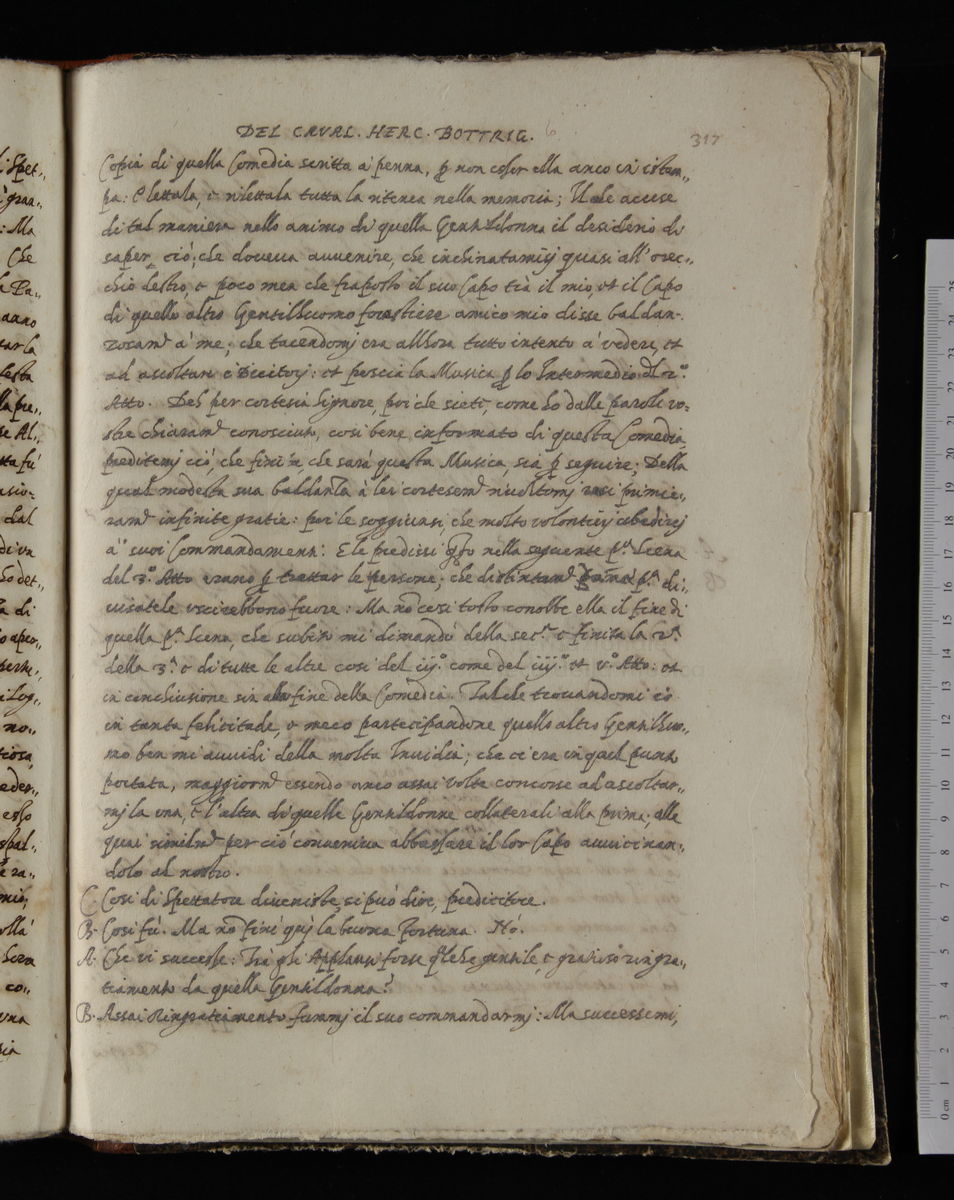 DEL CAVAL. HERC. BOTTRIG.
317
Copia di quella Comedia scritta à penna, p non esser ella anco in istam„
pa: E lettala, e rilettala tutta la ritenea nella memoria; Il che accese
di tal maniera nello animo di quella Gentildonna il desiderio di
saper ciò; che doveva avvenire, che inchinatamisi quasi all'orec„
chio destro, e poco men che fraposto il suo Capo trà il mio, et il Capo
di quello altro Gentilhuomo forestiere amico mio disse baldan-
zosamte à me; che tacendomi era allhora tutto intento à vedere, et
ad ascoltare e Dicitori: et poscia la Musica p lo Intermedio del 2.º
Atto. Deh per cortesia Signore, poi che siete, come ho dalle parole vo=
stre chiaramte conosciuto, così bene informato di questa Comedia
preditemi ciò, che finita, che sarà questa Musica, sia p seguire; Della
quale modesta sua baldanza à lei cortesemte rivoltomi resi primie„
ramte infinite gratie: poi le soggiunsi, che molto volontieri ubedirei
à suoi Commandamenti: E le predissi nella seguente pª Scena
del 3.º Atto erano p trattar le persone; che distintamte pª di„
visatele uscirebbono fuore: Ma nõ così tosto conobbe ella il fine di
quella pª Scena, che subito mi dimandò della secª e finita la 2ª
della 3ª e di tutte le altre così del iijº come del iiijº et vº Atto: et
in conclusione sin alla fine della Comedia. Talche trovandomi io
in tanta felicitade, e meco participandone quello altro Gentilhuo„
mo ben mi avvidi della molta Invidia; che ci era in quel punto
portata, maggiormte essendo anco assai volte concorse ad ascoltar„
mi la una, e l'altra di quelle Gentildonne collaterali alla prima; alle
quai similmte per ciò conveniva abbassare il lor Capo avvicinan„
dolo al nostro.
C. Così di Spettatore diveniste, si può dire, predicitore.
B. Così fù. Ma nõ finì quì la buona Fortuna. Nò.
A. Che vi successe: Trà gli Applausi forse qlche gentile, e gratioso ringra„
tiamento da quella Gentildonna?
B. Assai Ringratiamento fummi il suo commandarmi: Ma successemi,